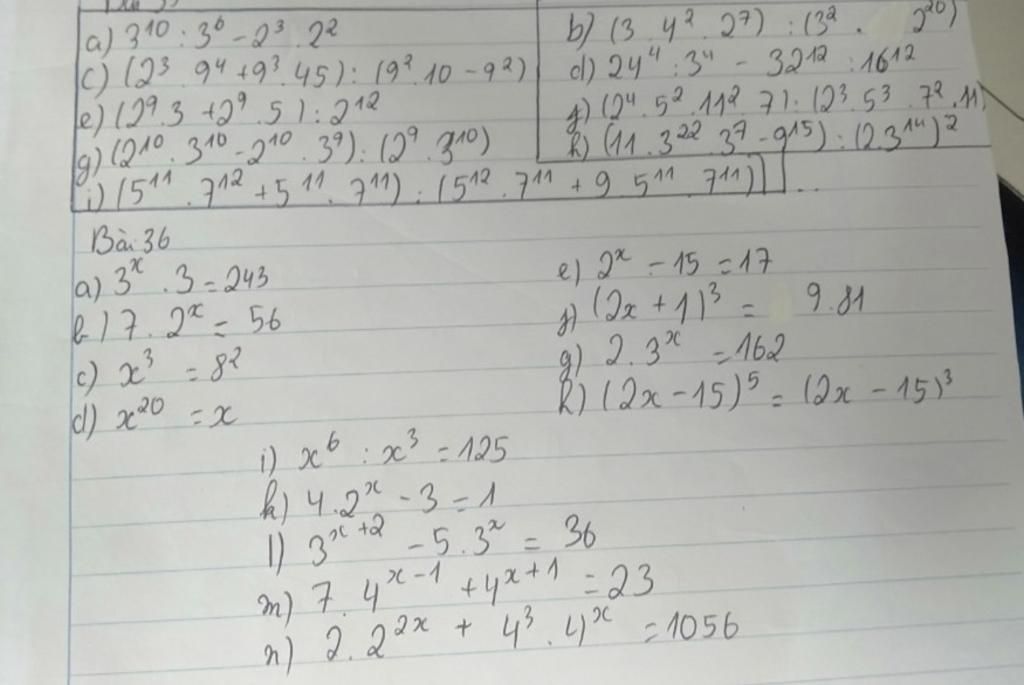 a) 3¹⁰ : 3⁶ - 2³ . 2²
b) (3 . 4² . 2⁷) : (3² . 2²⁰)
c) (2³ . 9⁴ + 9³ . 45) : (9² . 10 - 9²)
d) 24⁴ : 3⁴ - 32¹² : 16¹²
e) (2⁹ . 3 + 2⁹ . 5) : 2¹²
f) (2⁴ . 5² . 11² . 7) : (2³ . 5³ . 7² . 11)
g) (2¹⁰ . 3¹⁰ - 2¹⁰ . 3⁹) : (2⁹ . 3¹⁰)
h) (11 . 3²² . 3⁷ - 9¹⁵) : (2 . 3¹⁴)²
i) (5¹¹ . 7¹² + 5¹¹ . 7¹¹) : (5¹² . 7¹¹ + 9 . 5¹¹ . 7¹¹)
Bài 36
a) 3ˣ . 3 = 243
b) 7 . 2ˣ = 56
c) x³ = 8²
d) x²⁰ = x
e) 2ˣ - 15 = 17
f) (2x + 1)³ = 9 . 81
g) 2 . 3ˣ = 162
h) (2x - 15)⁵ = (2x - 15)³
i) x⁶ : x³ = 125
k) 4 . 2ˣ - 3 = 1
l) 3ˣ⁺² - 5 . 3ˣ = 36
m) 7 . 4ˣ⁻¹ + 4ˣ⁺¹ = 23
n) 2 . 2²ˣ + 4³ . 4ˣ = 1056